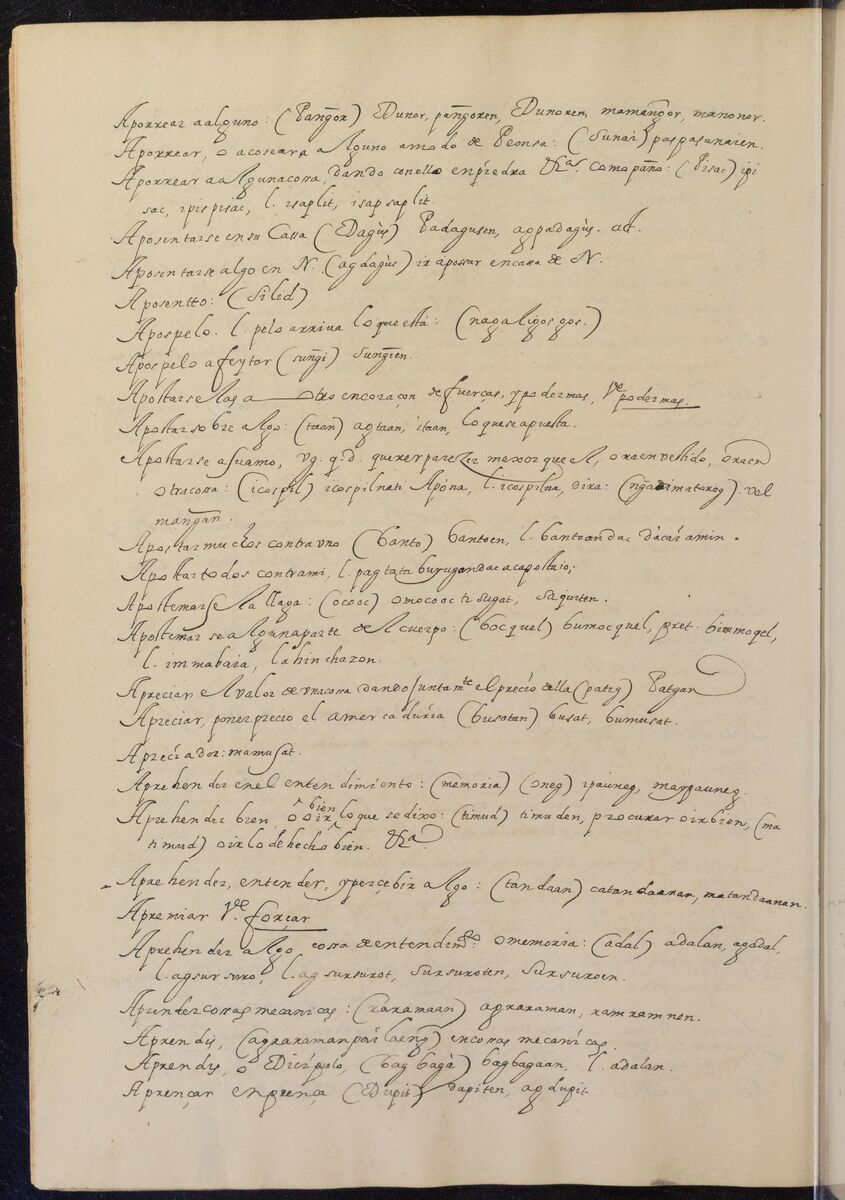 Aporrear a alguno: (Pang̃or) Dunor, pang̃oren, Dunoren, mamang̃or, manonor.
Aporrear, o acosear a alguno amodo de Peonsa: (Sunai) paspasunaien.
Aporrear a algunacossa, dando conello enpiedra &ca. como paño: (Pisac) ipi
sac, ipispisac, l. isaplit, isapsaplit.
Aposentarse ensu Cassa (Dagùs) Padagusen, agpadagùs. act.
Aposentarse algo en N. (agdagùs) ir apossar encassa de N.
Aposentto: (Silid)
Apospelo. l. pelo arriva loqueestà: (nagaligosgos.)
Apospelo afeytar (sung̃i) Sung̃ien.
Apostarselas a otro encoraçon de fuerças, ypodermas, Vde podermas.
Apostar sobre algo: (taan) agtaan, itaan, loqueseapuesta.
Apostarse asuamo, vg. q.d. querer parezer mexor que el, ora en vestido, ora en
otracossa: (icospil) icospilnati Apona, l. icospilna, dira: (ng̃adimatorog) vel
mang̃an.
Apostar muchos contra vno (banto) bantoen, l. bantoandac dacai amin.
Apostar todos contrami, l. pagtataburugandac acapostaro;
Apostemarse la llaga: (ocooc) omocooc ti sugat, saquiten.
Apostemarse algunaparte del cuerpo: (bocquel) bumocquel, pret. bimmoqel,
l. immabaia, la hinchazon.
Apreciar el valor de vnacossa dando juntamte el precio della (pateg) Patgan
Apreciar, poner precio el amercaduria (busatan) busat, bumusat.
Apreciador: mamusat.
Aprehender enel entendimiento: (memoria) (oneg) ipauneg, maypauneg.
Aprehender bien, ô oir bien lo que se dixo: (timud) timuden, procurar oirbien, (ma
timud) oirlo dehecho bien. &ca.
Aprehender, entender, yperçebir algo: (tandaan) catandaanan, matandaanan.
Apremiar Vde. forçar
Aprehender algo, cossa deentendimto. o memoria: (adal) adalan, agadal,
l. agsursuro, l. agsursurot, sursuroten, sursuroen.
Aprender cossas mecanicas: (raramaan) agraraman, ramramnen.
Aprendis, (agraramanpai laeng̃) encossas mecanicas.
Aprendis, o Dicipulo, (bagbagà) bagbagaan, l. adalan.
Aprençar enprença (Dupit) dupiten, agdupit